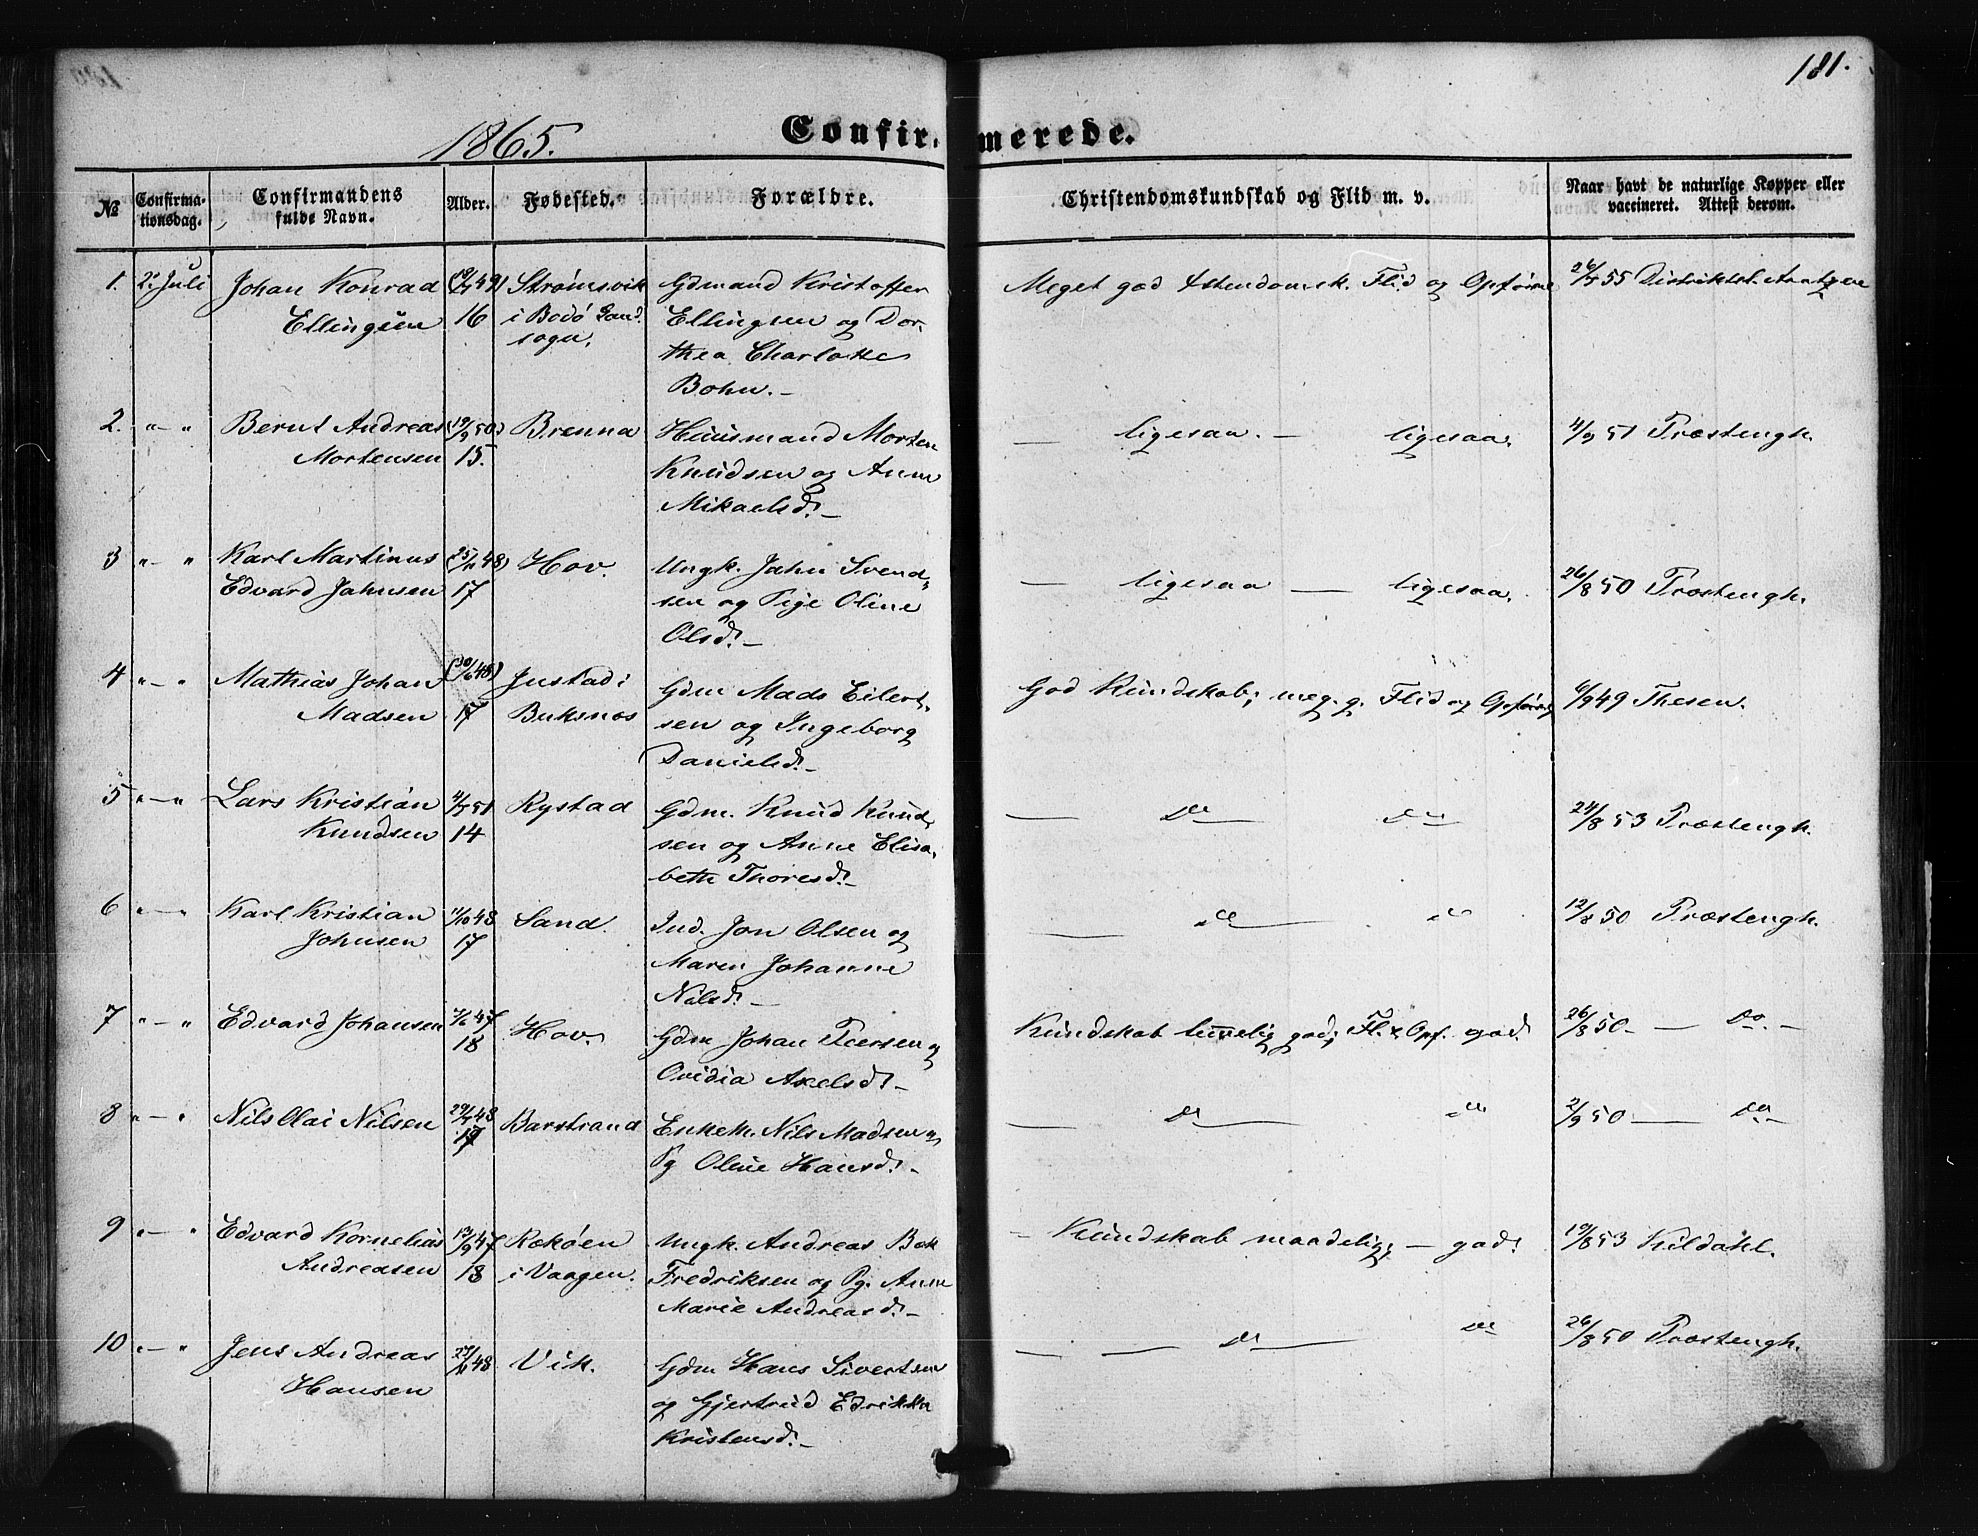 181.
1865.
Confirmerede.
№ Confirmationsdag. Confirmandens fulde Navn. Alder. Fødested. Forældre. Christendomskundskab og Flid m. v. Naar havt de naturlige Kopper eller vaccineret. Attest derom.
1. 2. Juli Johan Konrad 49) Strømsvik Gdmand Kristoffer Meget god Xstendomsk. Flid og Opførsel 55 Distriktsl.
Ellingsen 16 i Bodø Ellingsen og Dor-
sogn. thea Charlotte
Bohn.-
2. "-" Bernt Andreas (19/9 50) Brenna Huusmand Morten — ligesaa. — ligesaa. 4/9 51 Præstengh.
Mortensen 15. Knudsen og Anne
Mikaelsd.-
3 "-" Karl Martinus 48) Hov. Ungk. Jahn Svend- — ligesaa — ligesaa. 26/8 50 Præstengh.
Edvard Jahnsen 17 sen og Pige Oline
Olsd.-
4 "-" Mathias Johan (30/6 48) Justad i Gdm Mads Eilert- God Kundskab; meg. g. Flid og Opførsel 6/9 49 Thesen.
Madsen 17 Buksnes sen og Ingeborg
Danielsd.-
5 "-" Lars Kristian 51 Rystad Gdm. Knud Knud- — do — do 24/8 53 Præstengh.
Knudsen 14 sen og Anne Elisa-
beth Thoresd.-
6 "-" Karl Kristian 11/10 48 Sand. Ind. Jon Olsen og — do — do 50 Præstengh.
Johnsen 17 Maren Johanne
Nilsd.-
7 "-" Edvard Johansen 47 Hov. Gdm Johan Peersen og Kundskab temmelig god; Fl. & Opf. god. 26/8 50 - — Do. -
18 Ovidia Axelsd.-
8 "-" Nils Olai Nilsen 48 Barstrand Enkem. Nils Madsen og — do — do 2/9 50 — Do -
17 Pg Oline Hansd.-
9 "-" Edvard Kornelius 13/9 47 Rækøen Ungk. Andreas Bek - Kundskab maadelig; — god. 19/8 53 Kildahl.
Andreasen 18 i Vaagen. Fredriksen og Pg. Anne
Marie Andreasd.-
10 "-" Jens Andreas 48 Vik. Gdm Hans Sivertsen — — do — do 26/8 50 Præstengh.
Hansen og Gjertrud Edrikke
Kristensd.-